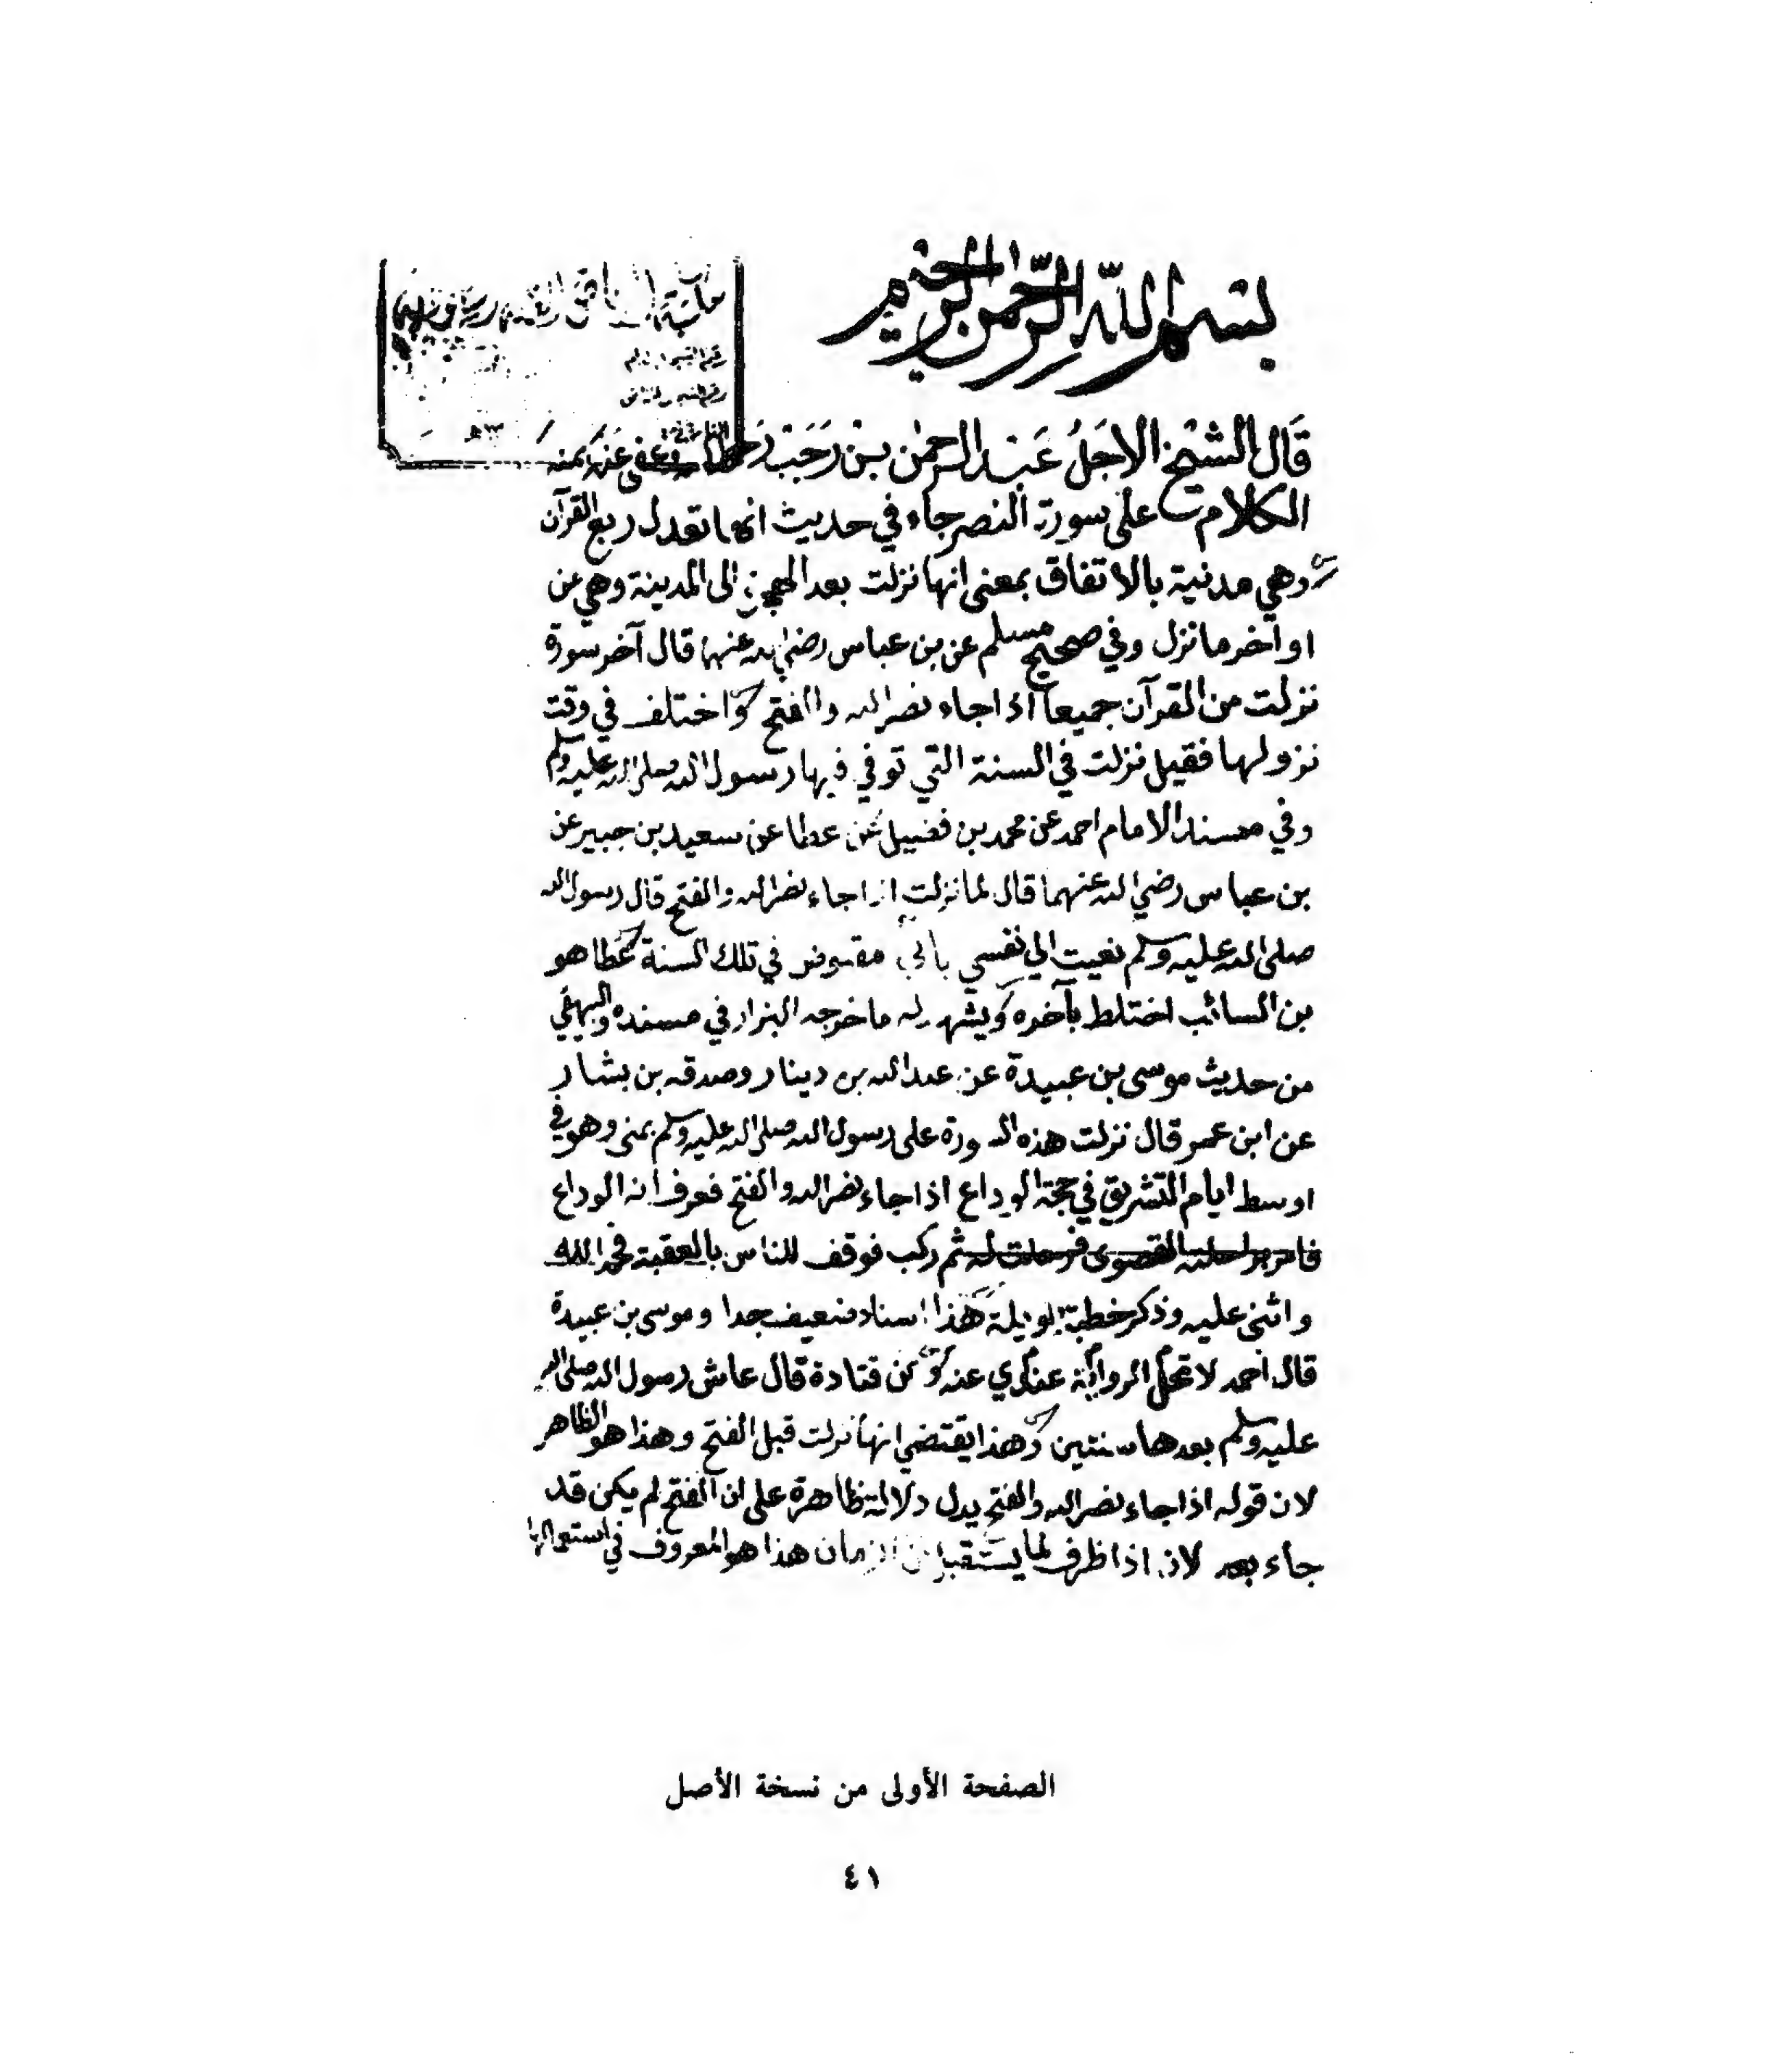 بسم الله الرحمن الرحيم
قال الشيخ الاجل عبد الرحمن بن رجب رحمه الله وعفى عنه بمنه
الكلام على سورة النصر جاء في حديث انها تعدل ربع القرآن
وهي مدنية بالاتفاق بمعنى انها نزلت بعد الهجرة الى المدينة وهي من
اواخر ما نزل وفي صحيح مسلم عن بن عباس رضي الله عنهما قال آخر سورة
نزلت من القرآن جميعا اذا جاء نصر الله والفتح واختلف في وقت
نزولها فقيل نزلت في السنة التي توفي فيها رسول الله صلى الله عليه وسلم
وفي مسند الامام احمد عن محمد بن فضيل عن عطا عن سعيد بن جبير عن
بن عباس رضي الله عنهما قال لما نزلت اذا جاء نصر الله والفتح قال رسول الله
صلى الله عليه وسلم نعيت الي نفسي مقبوض في تلك السنة عطا هو
بن السائب اختلط بآخره ويشهد له ما خرجه البزار في مسنده والبيهقي
من حديث موسى بن عبيدة عن عبد الله بن دينار وصدقه بن بشار
عن ابن عمر قال نزلت هذه السورة على رسول الله صلى الله عليه وسلم بمنى وهو في
اوسط ايام التشريق في حجة الوداع اذا جاء نصر الله والفتح فعرف انه الوداع
فامر براحلته القصوى فرحلت له ثم ركب فوقف للناس بالعقبة فحمد الله
واثنى عليه وذكر خطبة طويلة هذا اسناد ضعيف جدا وموسى بن عبيدة
قال احمد لا تحل الرواية عندي عنه وعن قتادة قال عاش رسول الله صلى الله
عليه وسلم بعدها سنتين وهذا يقتضي انها نزلت قبل الفتح وهذا هو الظاهر
لان قوله اذا جاء نصر الله والفتح يدل دلالة ظاهرة على ان الفتح لم يكن قد
جاء بعد لان اذا ظرف لما يستقبل من الزمان هذا هو المعروف في استعمالها
الصفحة الأولى من نسخة الأصل
٤١